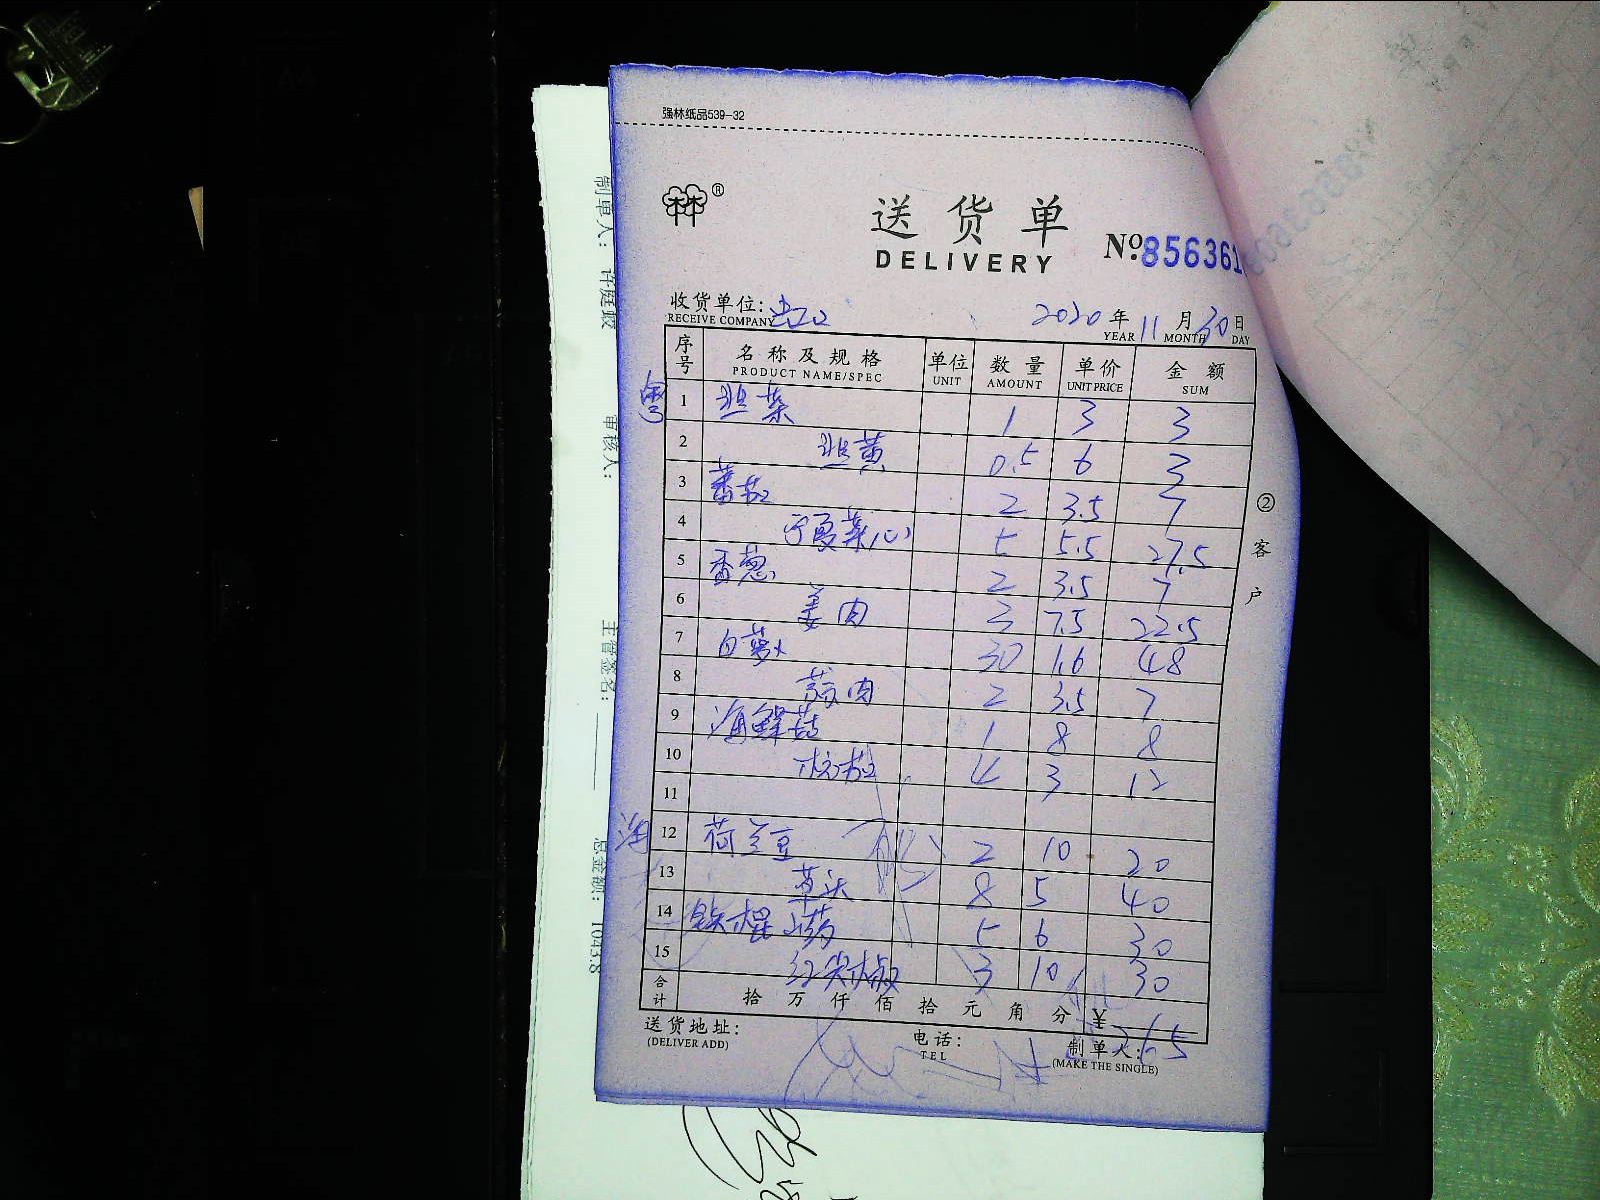 强林纸品539-32
®
送货单
DELIVERY
No. 856361
收货单位:
RECEIVE COMPANY
2020 年 11 月 30 日
YEAR MONTH DAY
序号 名称及规格 单位 数量 单价 金额
PRODUCT NAME/SPEC UNIT AMOUNT UNIT PRICE SUM
1 韭菜 1 3 3
2 韭黄 0.5 6 3
3 番茄 2 3.5 7
4 宁夏菜心 5 5.5 27.5
5 香葱 2 3.5 7
6 姜肉 3 7.5 22.5
7 白萝卜 30 1.6 48
8 蒜肉 2 3.5 7
9 海鲜菇 1 8 8
10 4 3 12
11
12 荷兰豆 2 10 20
13 草头 8 5 40
14 铁棍山药 5 6 30
15 红尖椒 3 10 30
合计 拾 万 仟 佰 拾 元 角 分 ¥ 265
送货地址:
(DELIVER ADD)
电话:
TEL
制单人:
(MAKE THE SINGLE)
②客户
制单人: 许庭
审核人:
主管签名:
总金额: 1043.8